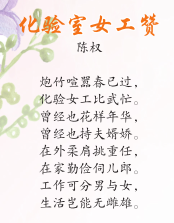 化验室女工赞
陈权
炮竹喧嚣春已过，
化验女工比武忙。
曾经也花样年华，
曾经也持夫婿娇。
在外柔肩挑重任，
在家勤俭伺儿郎。
工作可分男与女，
生活岂能无雌雄。